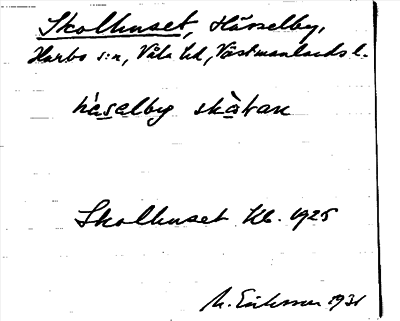 Skolhuset, Hässelby,
Harbo s:n, Våla hd, Västmanlands l.
hàselby skàtan
Skolhuset Kb. 1925
M. Eriksson 1931